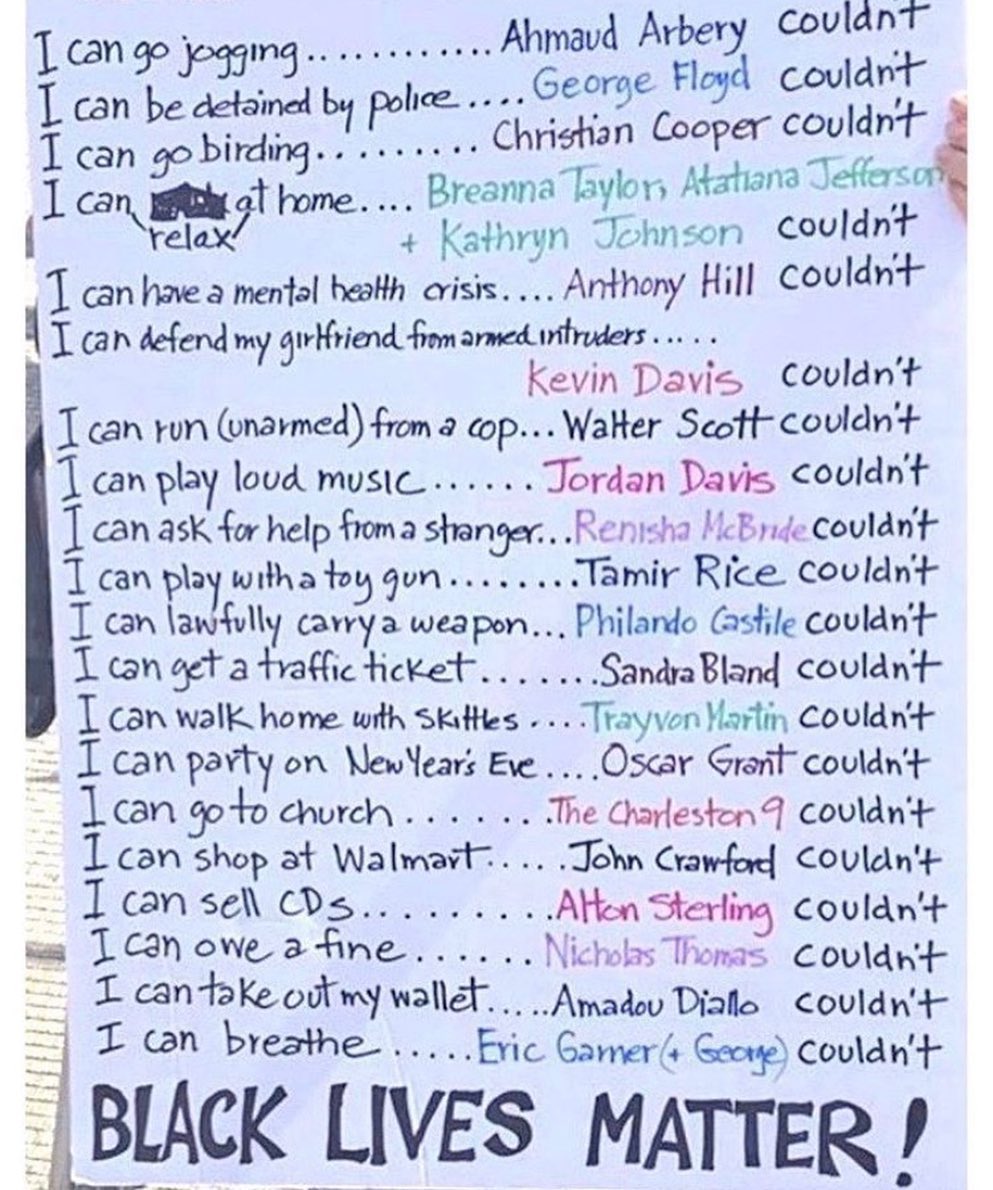 I can go jogging............ Ahmaud Arbery couldn't
I can be detained by police.... George Floyd couldn't
I can go birding.......... Christian Cooper couldn't
I can relax at home.... Breanna Taylor, Atatiana Jefferson
+ Kathryn Johnson couldn't
I can have a mental health crisis.... Anthony Hill couldn't
I can defend my girlfriend from armed intruders.....
Kevin Davis couldn't
I can run (unarmed) from a cop... Walter Scott couldn't
I can play loud music...... Jordan Davis couldn't
I can ask for help from a stranger... Renisha McBride couldn't
I can play with a toy gun........ Tamir Rice couldn't
I can lawfully carry a weapon... Philando Castile couldn't
I can get a traffic ticket....... Sandra Bland couldn't
I can walk home with Skittles.... Trayvon Martin couldn't
I can party on New Year's Eve.... Oscar Grant couldn't
I can go to church....... The Charleston 9 couldn't
I can shop at Walmart..... John Crawford couldn't
I can sell CDs.......... Alton Sterling couldn't
I can owe a fine...... Nicholas Thomas couldn't
I can take out my wallet..... Amadou Diallo couldn't
I can breathe..... Eric Garner (+ George) couldn't
BLACK LIVES MATTER!